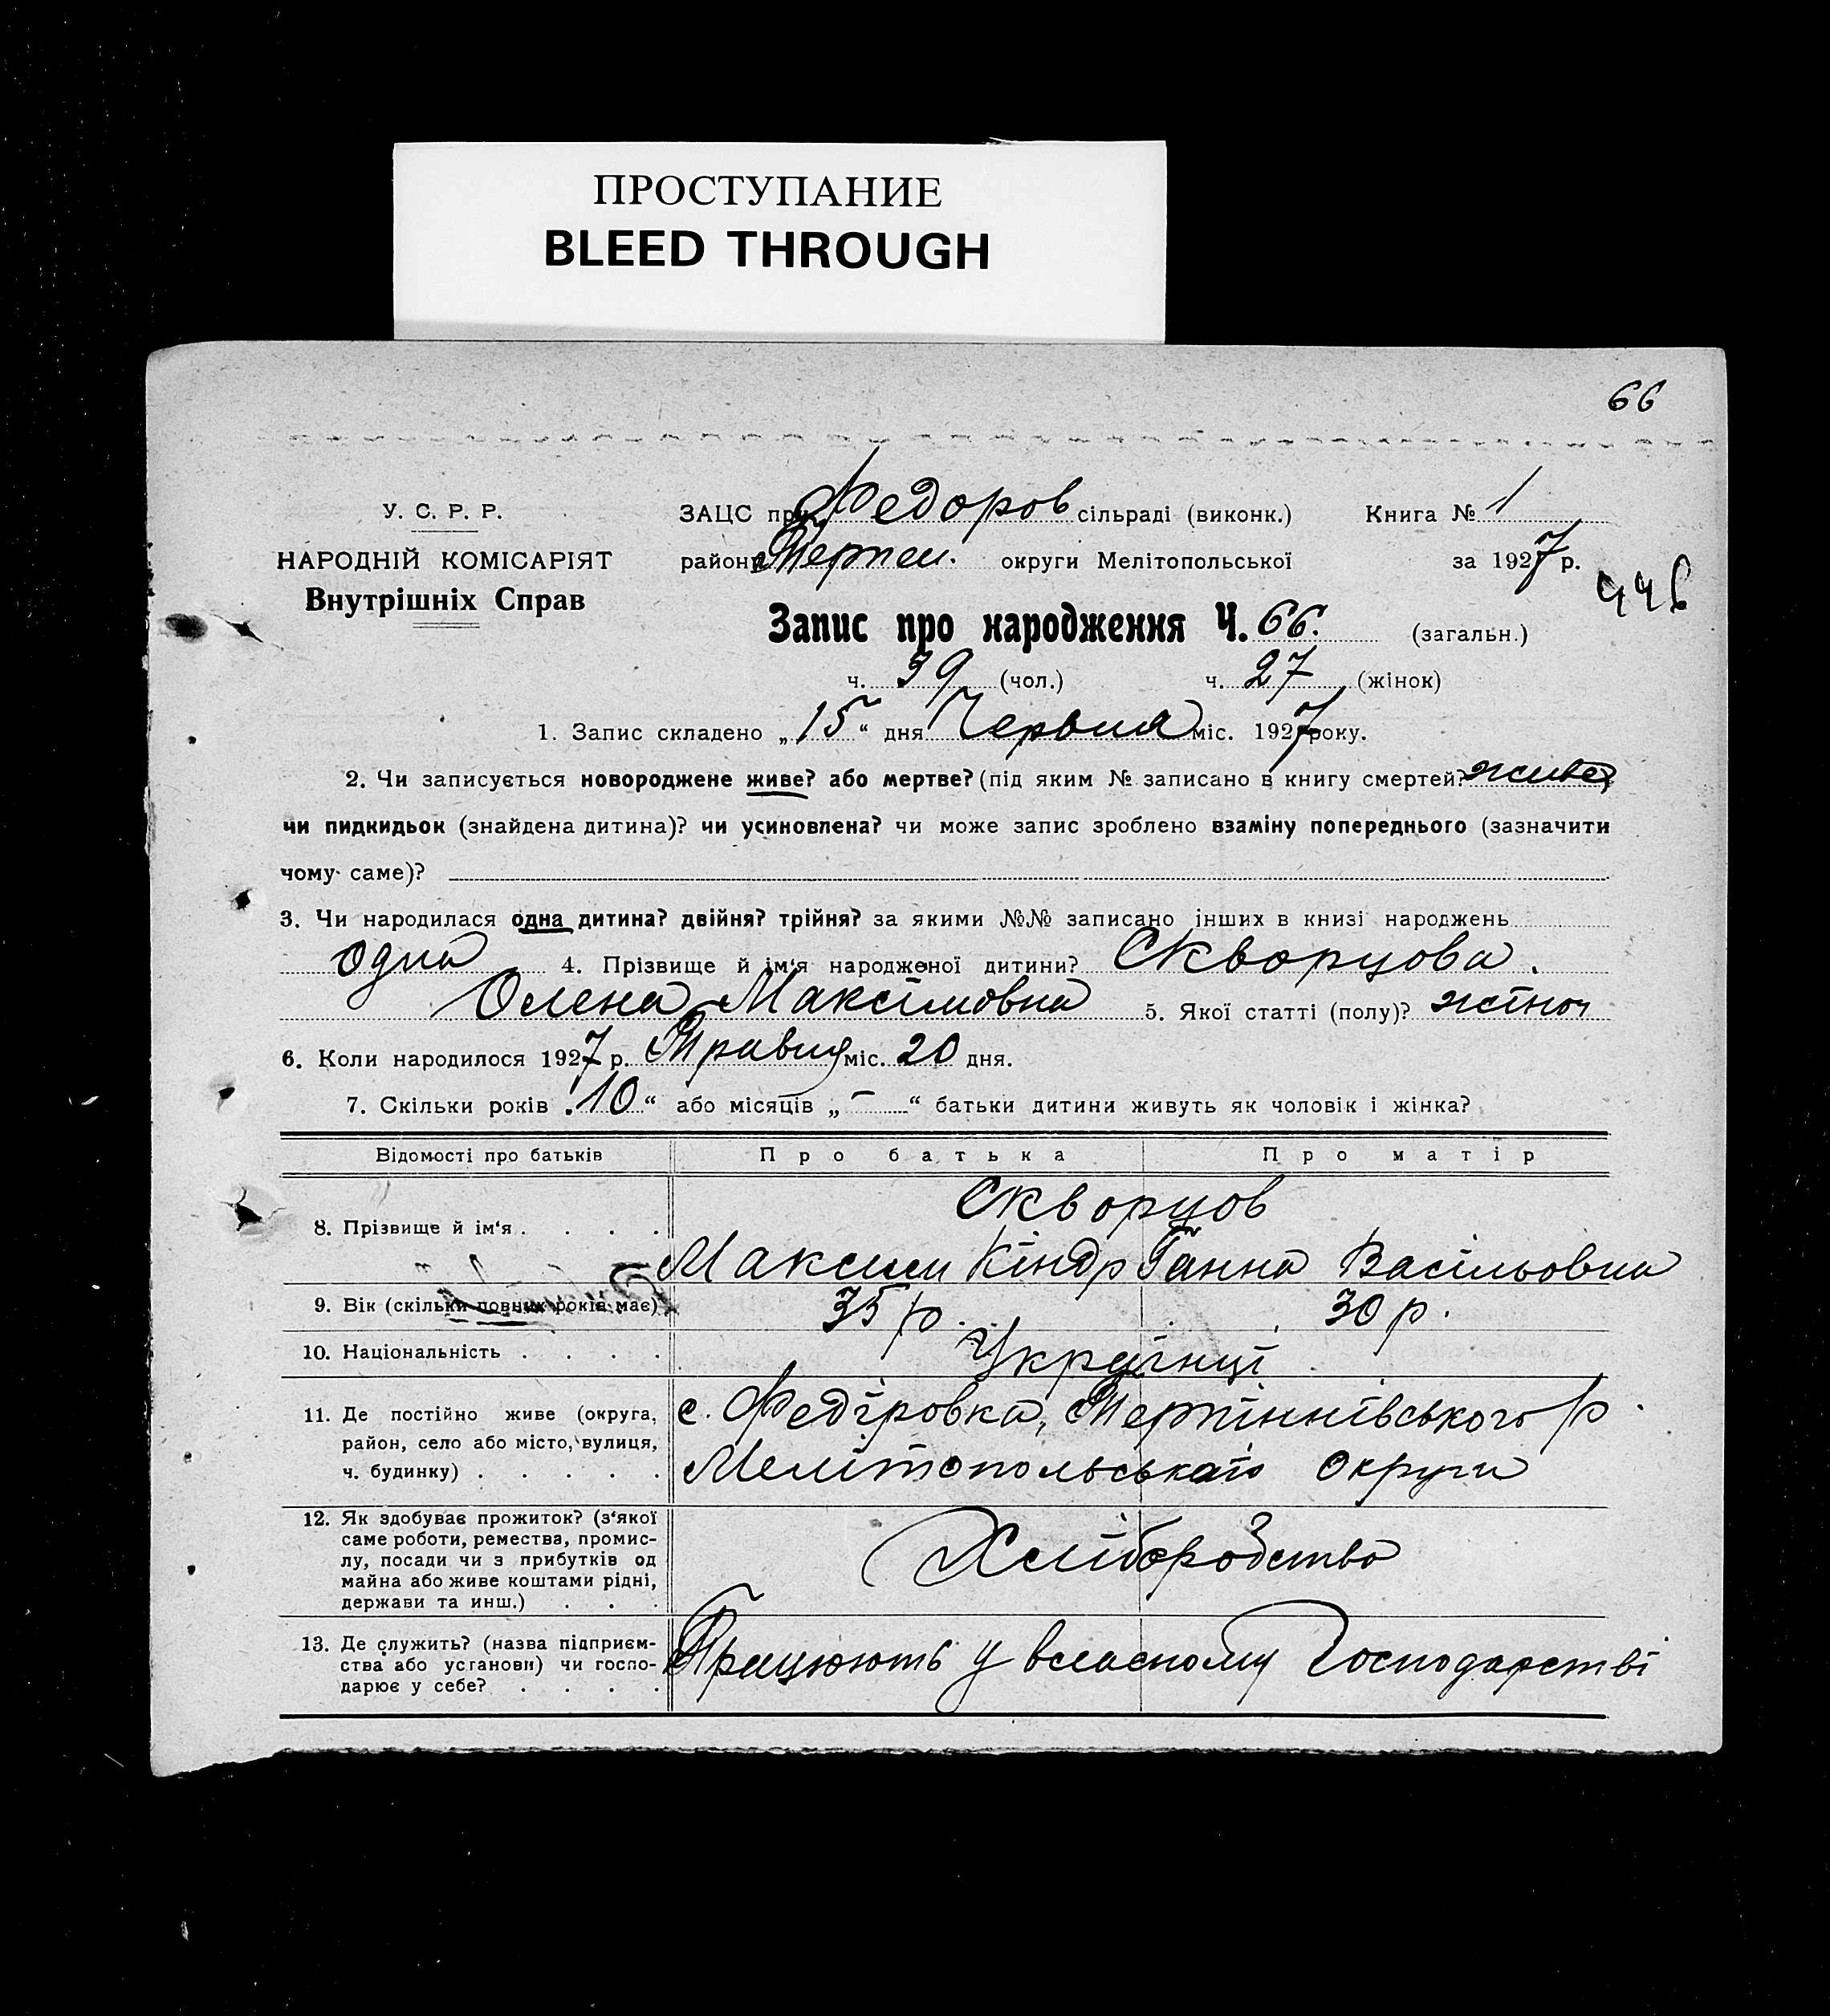 ПРОСТУПАНИЕ
BLEED THROUGH
66
У. С. Р. Р.
НАРОДНІЙ КОМІСАРІЯТ
Внутрішніх Справ
ЗАЦС при Федоров сільраді (виконк.) Книга № 1
району Терпен. округи Мелітопольської за 1927 р.
446
Запис про народження Ч. 66. (загальн.)
ч. 39 (чол.) ч. 27 (жінок)
1. Запис складено „15“ дня Червня міс. 1927 року.
2. Чи записується новороджене живе? або мертве? (під яким № записано в книгу смертей? живе
чи пидкидьок (знайдена дитина)? чи усиновлена? чи може запис зроблено взаміну попереднього (зазначити
чому саме)?
3. Чи народилася одна дитина? двійня? трійня? за якими №№ записано інших в книзі народжень
одна 4. Прізвище й ім‘я народженої дитини? Скворцова.
Олена Максімовна 5. Якої статті (полу)? жіноч
6. Коли народилося 1927 р. Травня міс. 20 дня.
7. Скільки років „10“ або місяців „–“ батьки дитини живуть як чоловік і жінка?
Відомості про батьків Про батька Про матір
Скворцов
8. Прізвище й ім‘я . . . .
Максим Кіндр Ганна Васільовна
9. Вік (скільки повних років має) 35 р. 30 р.
10. Національність . . . . Українці
11. Де постійно живе (округа, с. Федіровка, Терпіннівського р.
район, село або місто, вулиця,
ч. будинку) . . . . . Мелітопольського Округи
12. Як здобуває прожиток? (з‘якої
саме роботи, ремества, промис-
лу, посади чи з прибутків од Хліборобство
майна або живе коштами рідні,
держави та инш.) . . .
13. Де служить? (назва підприєм-
ства або установи) чи госпо- Працюють у власному Господарстві
дарює у себе? . . . .